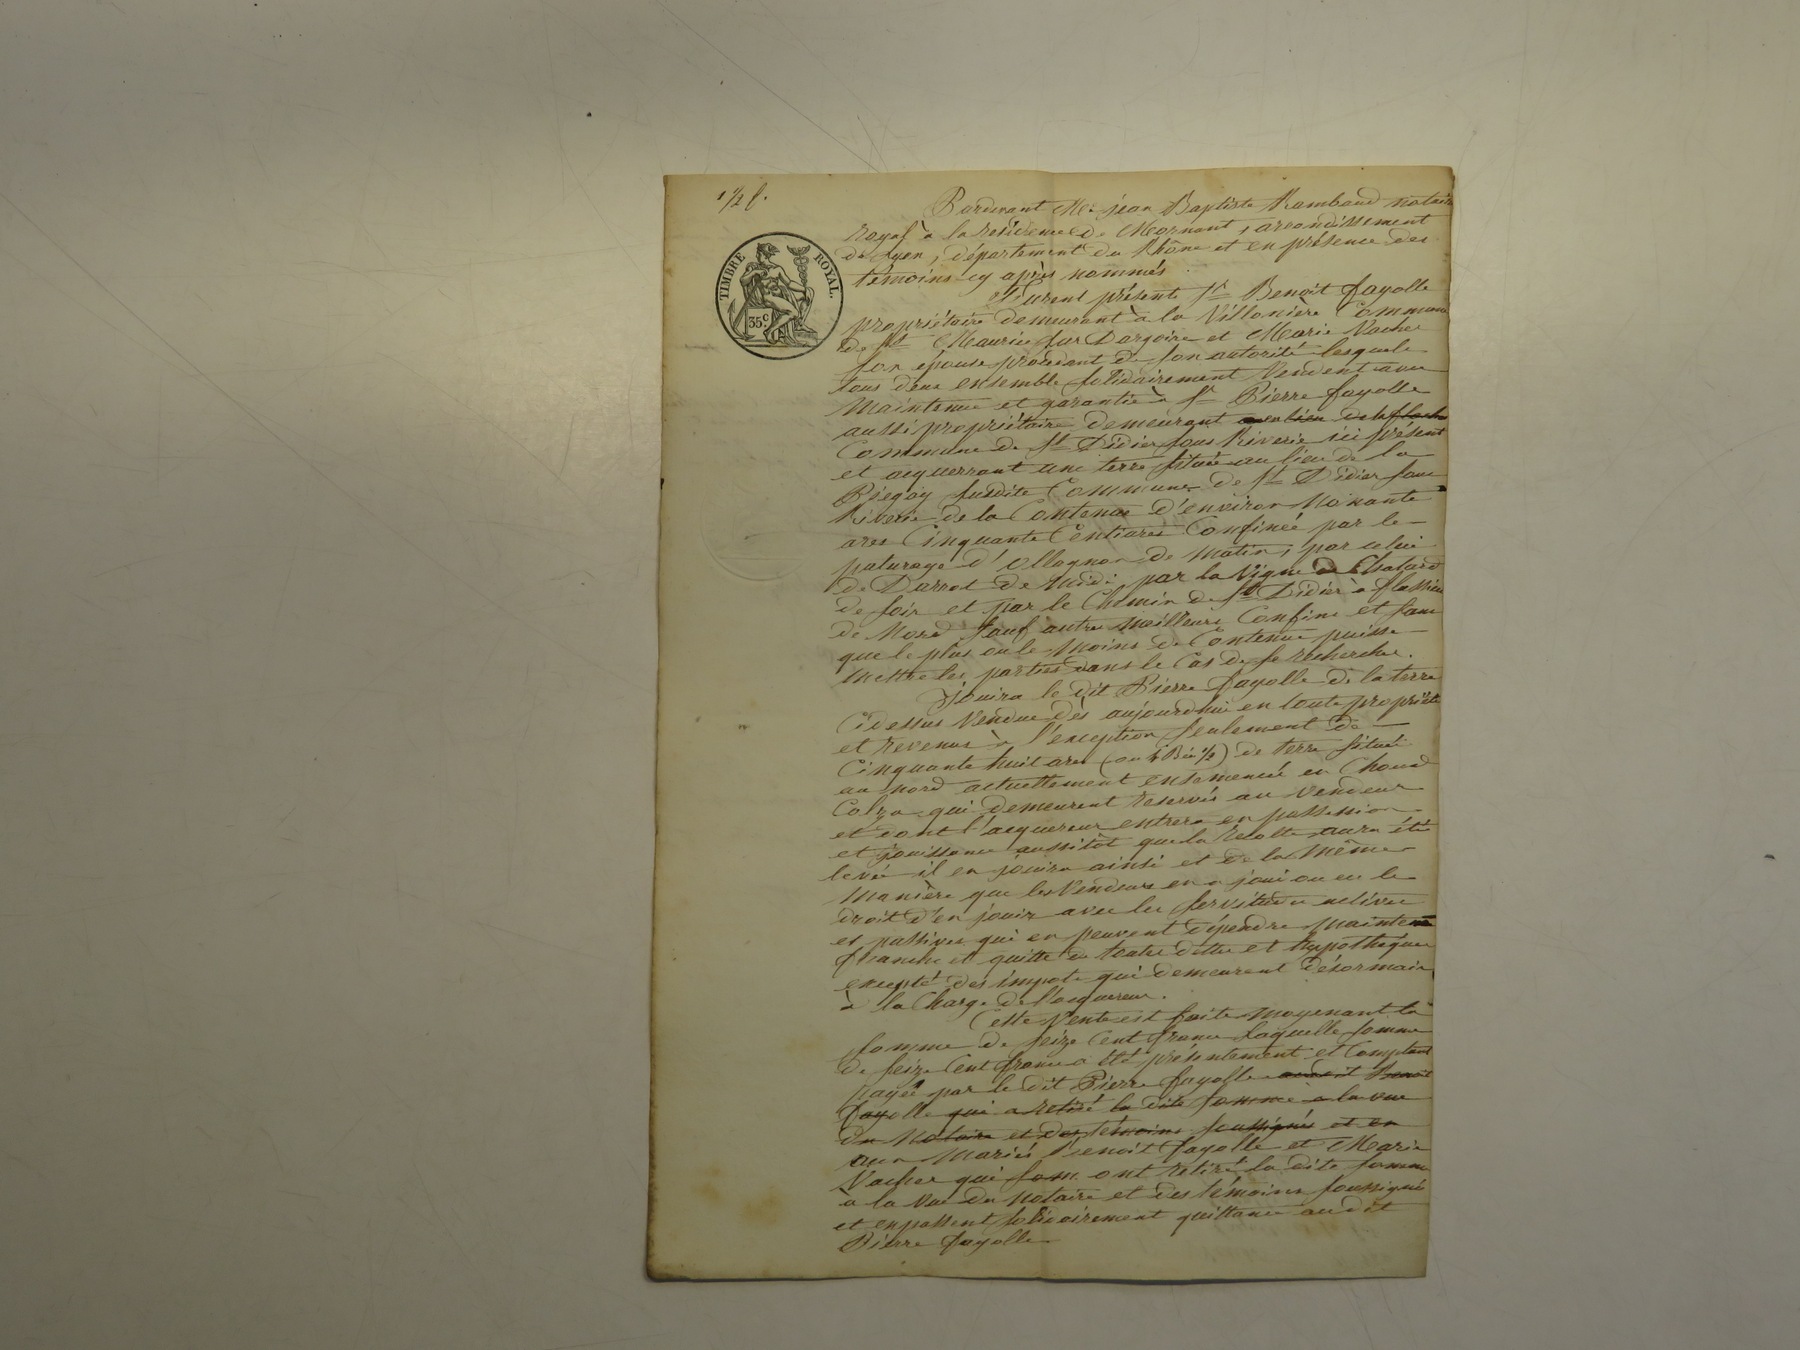 1/2 f.
TIMBRE ROYAL.
35 c.
Pardevant Me jéan Baptiste Rambaud notaire
royal à la résidence de Mornant, arrondissement
de Lyon, département du Rhône et en présence des
témoins cy après nommés
Furent présents Sr Benoit fayolle
propriétaire demeurant à la Villonière Commune
de St Maurice sur Dargoire et Marie Vacher
son épouse procédant de son autorité lesquels
tous deux ensemble solidairement Vendent avec
Maintenue et garantie à Sr Pierre fayolle
aussi propriétaire demeurant au lieu de
Commune de St Didier sous Riverie ici présent
et acquerrant une terre située au lieu de la
Piegay susdite Commune de St Didier sous
Riverie de la Contenue d'environ Nonante
ares Cinquante Centiares Confinée par le
paturage d'Ollagnon de matin, par celui
de Darrot de midi, par la Vigne de Chatard
de soir et par le Chemin de St Didier à flassieu
de Nord sauf autres meilleurs Confins et sans
que le plus ou le moins de Contenue puisse
mettre les parties dans le Cas de se rechercher.
Jouira le dit Pierre fayolle de la terre
Cidessus Vendue dès aujourdhui en toute propriété
et revenus à l'exception seulement de
Cinquante huit ares (ou 4 Bées 1/2) de terre située
au nord actuellement ensemencée en Choux
Colza qui demeurent reservés au vendeur
et dont l'acquereur entrera en possession
et jouissance aussitôt que la récolte aura été
levée il en jouira ainsi et de la même
Manière que les Vendeurs en a joui ou eu le
droit d'en jouir avec les servitudes actives
et passives qui en peuvent dépendre maintenue
franche et quitte de toutes dettes et hypothèques
excepté des impots qui demeurent désormais
à la Charge de l'acquereur.
Cette Vente est faite moyenant la
somme de seize Cent francs laquelle somme
de seize Cent francs a été présentement et Comptant
payée par le dit Pierre fayolle audit Benoit
fayolle qui a retiré la dite somme à la vue
du Notaire et des témoins soussignés et en
aux Mariés Benoit fayolle et Marie
Vacher qui som ont retiré la dite somme
à la vue du notaire et des témoins soussignés
et en passent solidairement quittance audit
Pierre fayolle